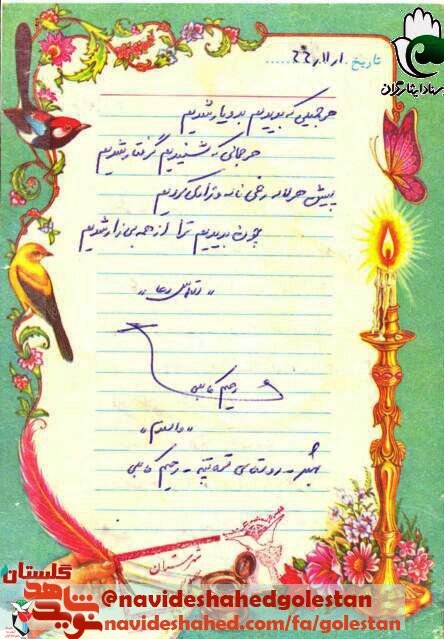 تاریخ ۶۶/۱۱/۱
هر جمیلی که بدیدیم بدو یار شدیم
هر جمالی که شنیدیم گرفتار شدیم
پیش هر لاله رخی ناله و زاری کردیم
چون بدیدیم ترا از همه بی زار شدیم
«التماس دعا»
رحیم کابلی
«والسلام»
بهشهر - روستای - رحیم کابلی
گلستان
نوید شاهد
@navideshahedgolestan
navideshahed.com/fa/golestan